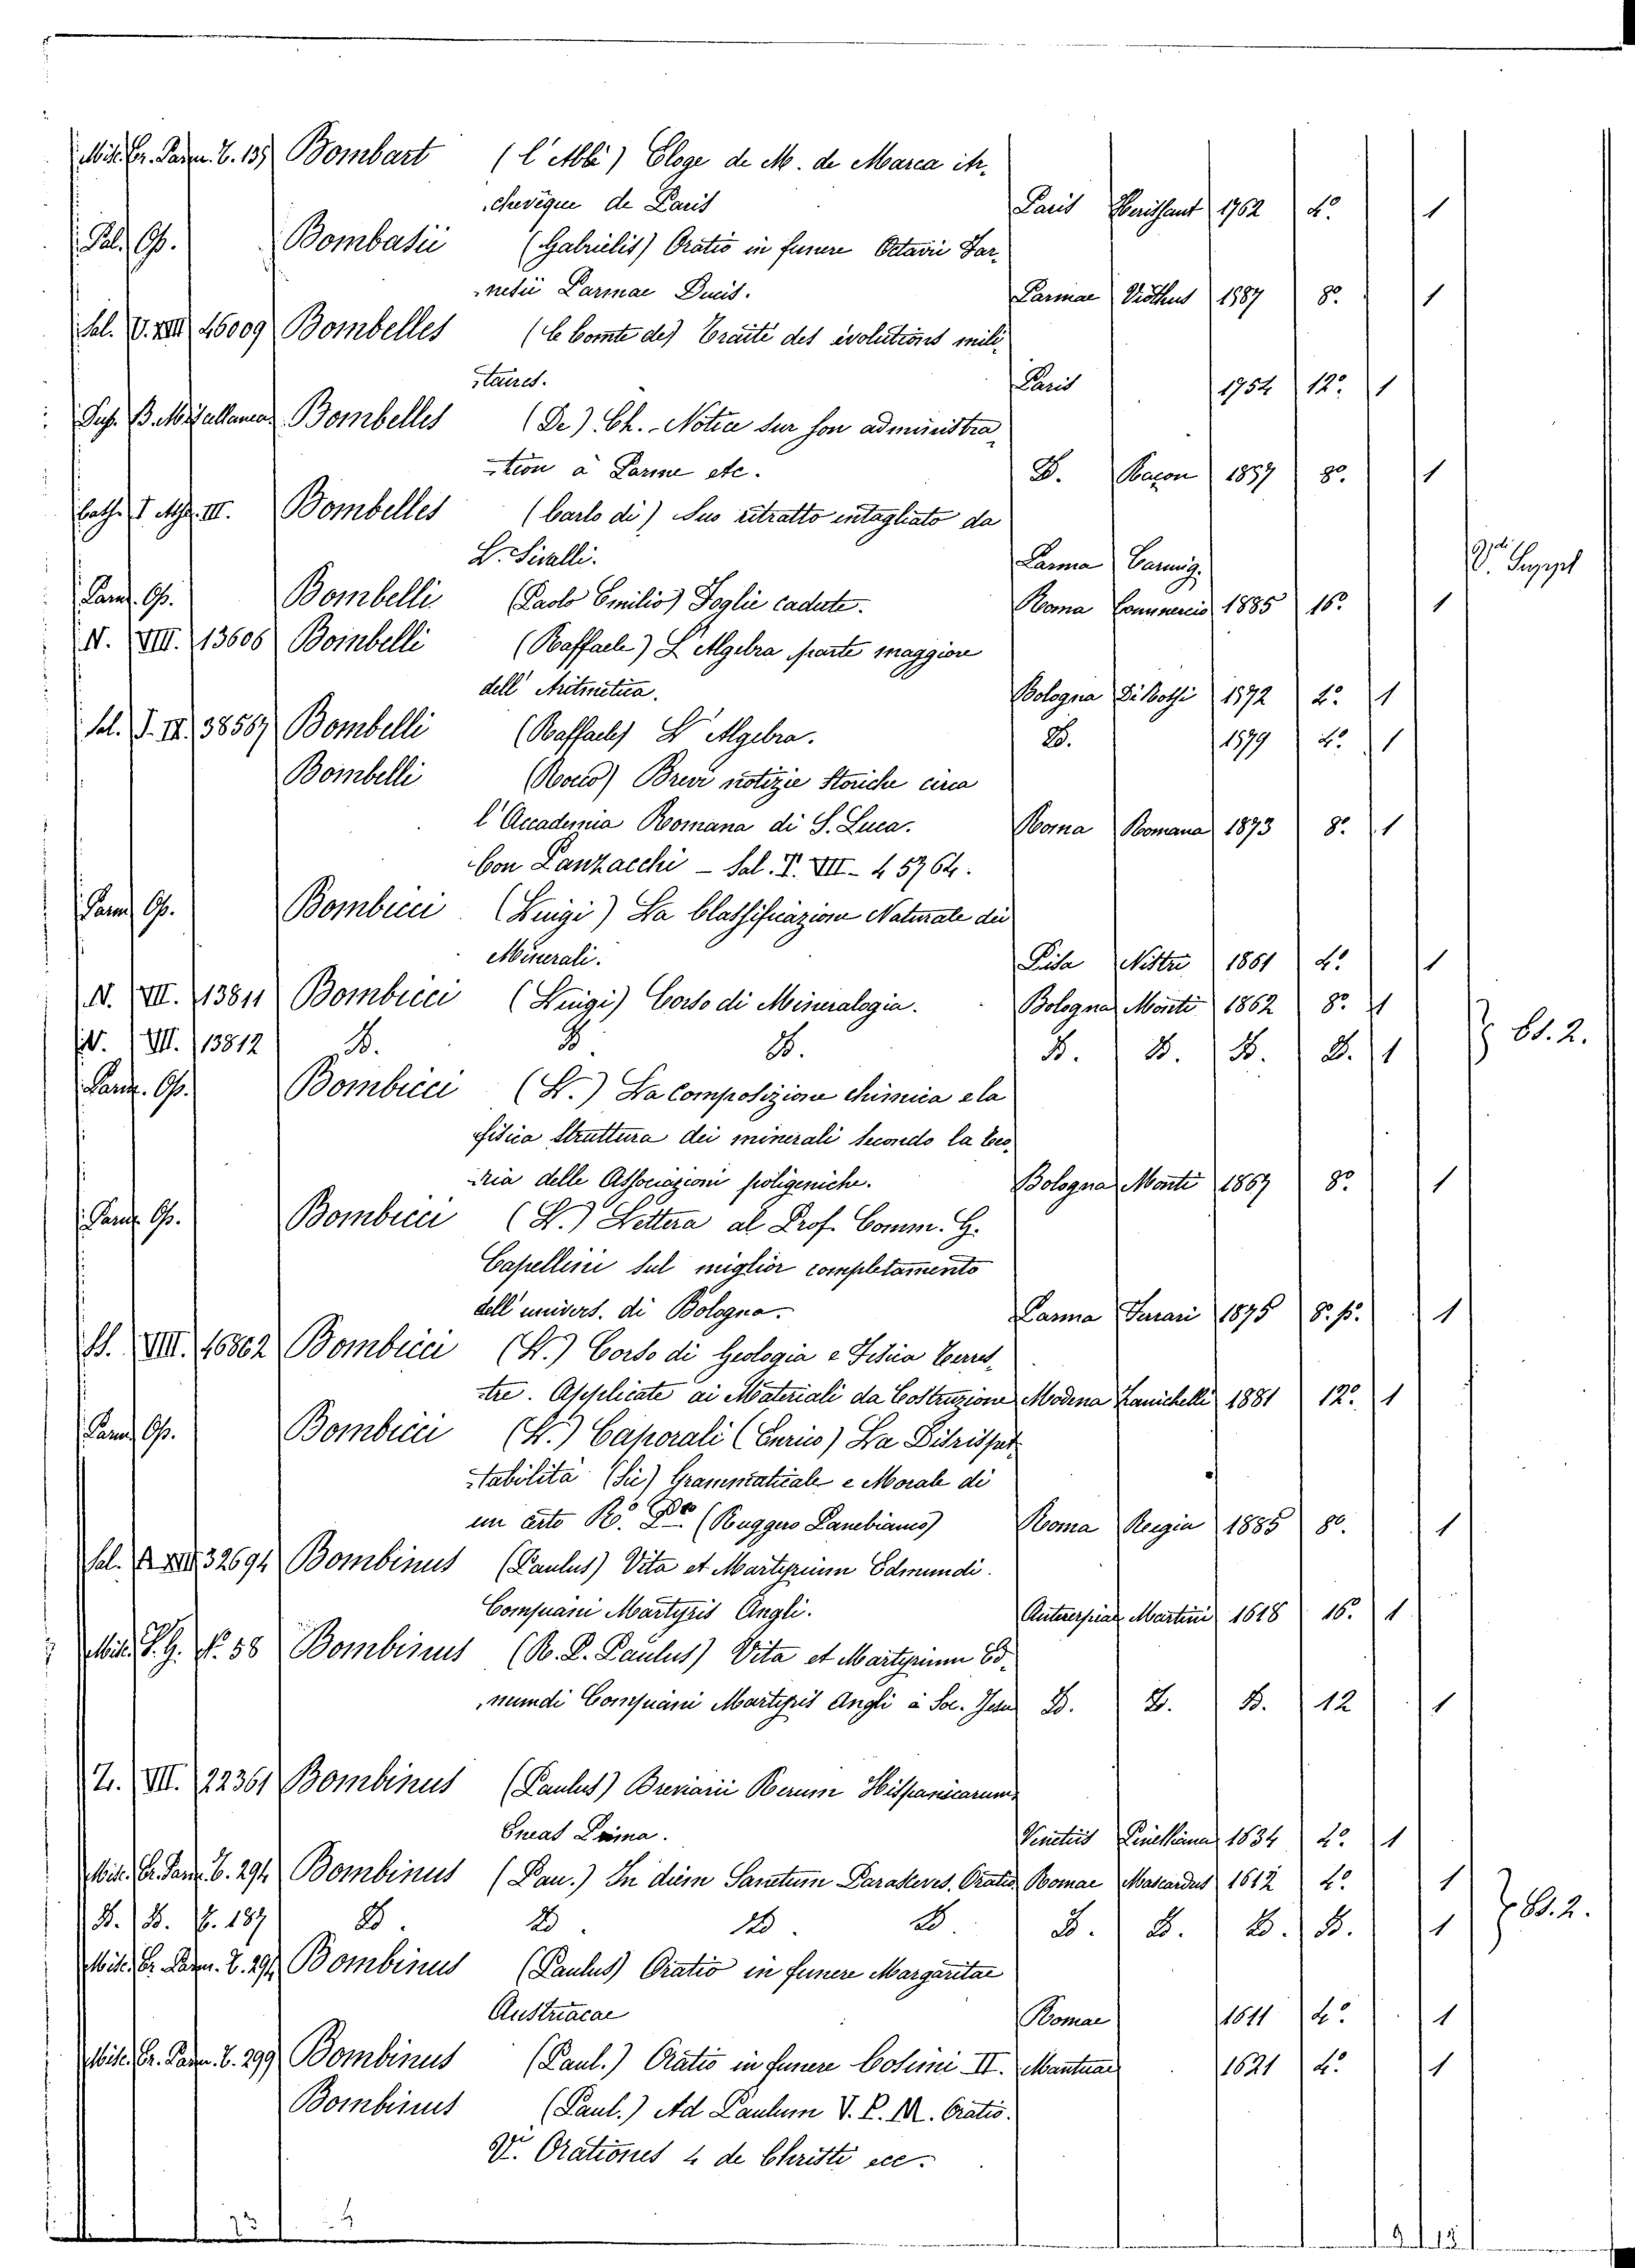 Misc. Er. Parm. T. 135 Bombart (l'Abbé) Eloge de M. de Marca Ar-
chevêque de Paris Paris Herissant 1762 4.° 1
Pal. Op. Bombasii (Gabrielis) Oratio in funere Octavii Far-
nesii Parmae Ducis. Parmae Viothus 1587 8.° 1
Sal. V. XIII 46009 Bombelles (le Comte de) Traité des évolutions mili-
taires. Paris 1754 12.° 1
B. Miscellanea Bombelles (De) Ch. - Notice sur son administra-
tion à Parme etc. D. Bacon 1857 8.° 1
III. Bombelles (Carlo di) Suo ritratto intagliato da
L. Sivalli. Parma Carmig. V. Suppl
Parm. Op. Bombelli (Paolo Emilio) Foglie cadute. Roma Commercio 1885 16.° 1
N. VIII. 13606 Bombelli (Raffaele) L'Algebra parte maggiore
dell'Aritmetica. Bologna De Rossi 1572 4.° 1
Sal. I. II. 38567 Bombelli (Raffaele) L'Algebra. D. 1579 4.° 1
Bombelli (Rocco) Brevi notizie storiche circa
l'Accademia Romana di S. Luca. Roma Romana 1873 8.° 1
Con Lanzacchi - Sal. T. VII - 45764.
Parm. Op. Bombicci (Luigi) La Classificazione Naturale dei
Minerali. Pisa Nistri 1861 4.° 1
N. VII. 13811 Bombicci (Luigi) Corso di Mineralogia. Bologna Monti 1862 8.° 1
N. VII. 13812 D. D. D. D. D. D. D. 1 Es. 2.
Parm. Op. Bombicci (L.) La composizione chimica e la
fisica struttura dei minerali secondo la teo-
ria delle Associazioni poligeniche. Bologna Monti 1867 8.° 1
Parm. Op. Bombicci (L.) Lettera al Prof. Comm. G.
Capellini sul miglior completamento
dell'univers. di Bologna. Parma Ferrari 1875 8.° p. 1
S. VIII. 46862 Bombicci (L.) Corso di Geologia e Fisica Terres-
tre. Applicate ai Materiali da Costruzione Modena Zanichelli 1881 12.° 1
Parm. Op. Bombicci (L.) Caporali (Enrico) La Disrispet-
tabilità (Sic) Grammaticale e Morale di
un certo R.° P.no (Ruggero Panebianco) Roma Regia 1885 8.° 1
Sal. XIII 32694 Bombinus (Paulus) Vita et Martyrium Edmundi.
Campiani Martyris Angli. Antverpiae Martini 1618 16. 1
Misc. S. G. N.° 58 Bombinus (R. P. Paulus) Vita et Martyrium Ed-
mundi Campiani Martyris Angli à Soc. Jesu D. D. D. 12 1
Z. VII. 22361 Bombinus (Paulus) Breviarii Rerum Hispanicarum,
Eneas Prima. Venetiis Pinelliana 1634 4.° 1
Misc. Er. Parm. T. 294 Bombinus (Pau.) In diem Sanctum Parasceves. Oratio Romae Mascardus 1612 4.° 1
D. D. T. 187 D. D. D. D. D. D. D. D. 1 Es. 2.
Misc. Er. Parm. T. 294 Bombinus (Paulus) Oratio in funere Margaritae
Austriacae Romae 1611 4.° 1
Misc. Er. Parm. T. 299 Bombinus (Paul.) Oratio in funere Cosimi II. Mantuae 1621 4.° 1
Bombinus (Paul.) Ad Paulum V. P. M. Oratio.
V. Orationes 4 de Christi ecc.